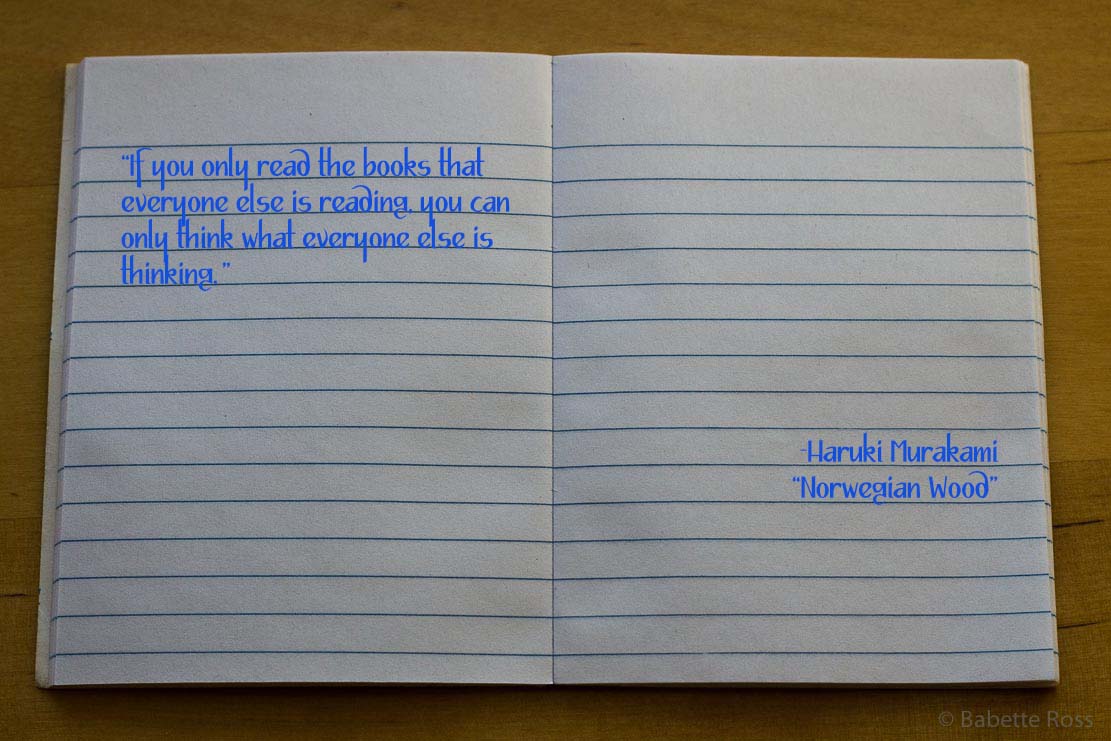 “If you only read the books that
everyone else is reading, you can
only think what everyone else is
thinking.”
-Haruki Murakami
“Norwegian Wood”
© Babette Ross